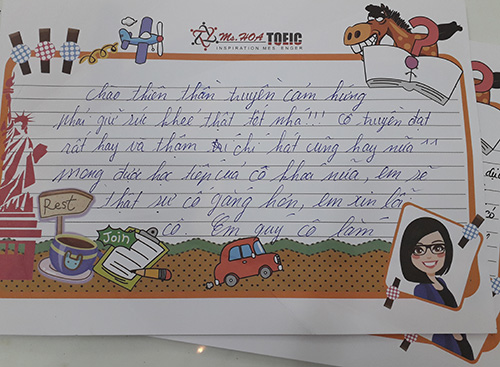 Ms. HOA TOEIC
INSPIRATION MESSENGER
Chào thiên thần truyền cảm hứng
phải giữ sức khoẻ thật tốt nhá!!! Cô truyền đạt
rất hay và thậm chí hát cũng hay nữa ^^
mong được học tiếp của cô khoá nữa, em sẽ
thật sự cố gắng hơn, em xin lỗi
cô. Em quý cô lắm
Rest
Join